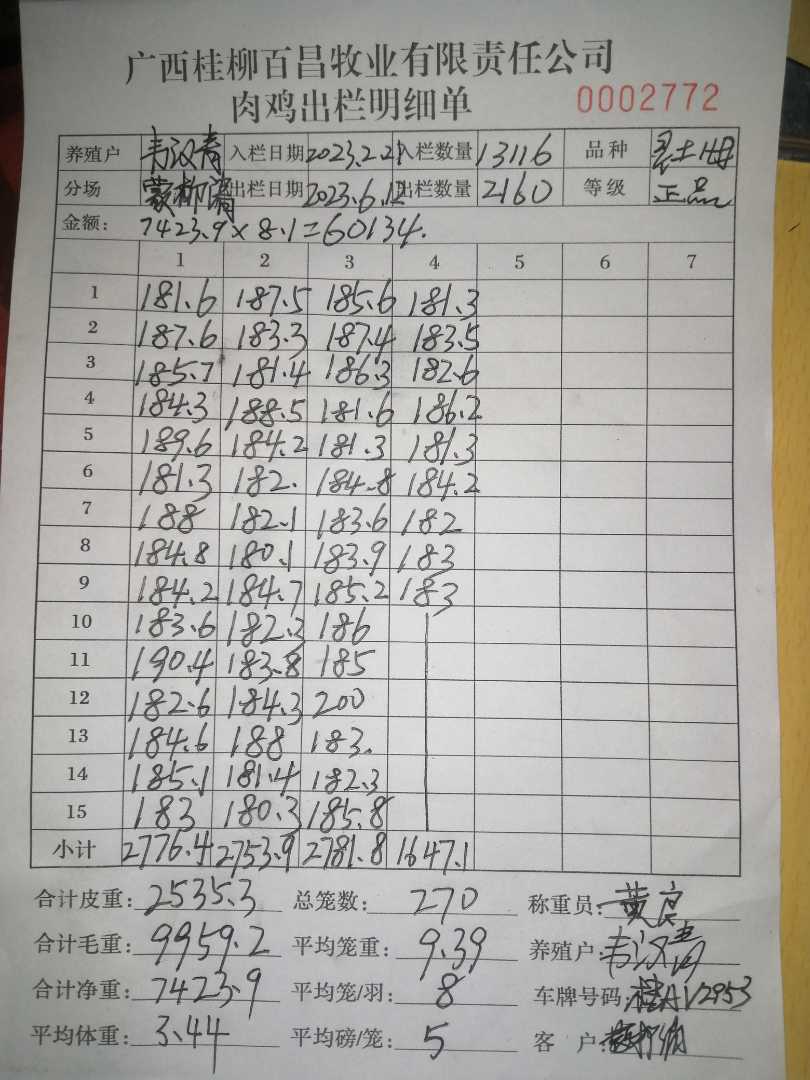 广西桂柳百昌牧业有限责任公司
肉鸡出栏明细单 0002772
养殖户 韦汉青 入栏日期 2023.2.21 入栏数量 13116 品种 土
分场 出栏日期 2023.6.12 出栏数量 2160 等级 正品
金额: 7423.9×8.1=60134.
1 2 3 4 5 6 7
1 181.6 187.5 185.6 181.3
2 187.6 183.3 187.4 183.5
3 185.7 181.4 186.3 182.6
4 184.3 188.5 181.6 186.2
5 189.6 184.2 181.3 181.3
6 181.3 182. 184.8 184.2
7 188 182.1 183.6 182
8 184.8 180.1 183.9 183
9 184.2 184.7 185.2 183
10 183.6 182.3 186
11 190.4 183.8 185
12 182.6 184.3 200
13 184.6 188 183.
14 185.1 181.4 182.3
15 183 180.3 185.8
小计 2776.4 2753.9 2781.8 1647.1
合计皮重: 2535.3 总笼数: 270 称重员: 黄
合计毛重: 9959.2 平均笼重: 9.39 养殖户: 韦汉青
合计净重: 7423.9 平均笼/羽: 8 车牌号码: 桂AV2953
平均体重: 3.44 平均磅/笼: 5 客户: